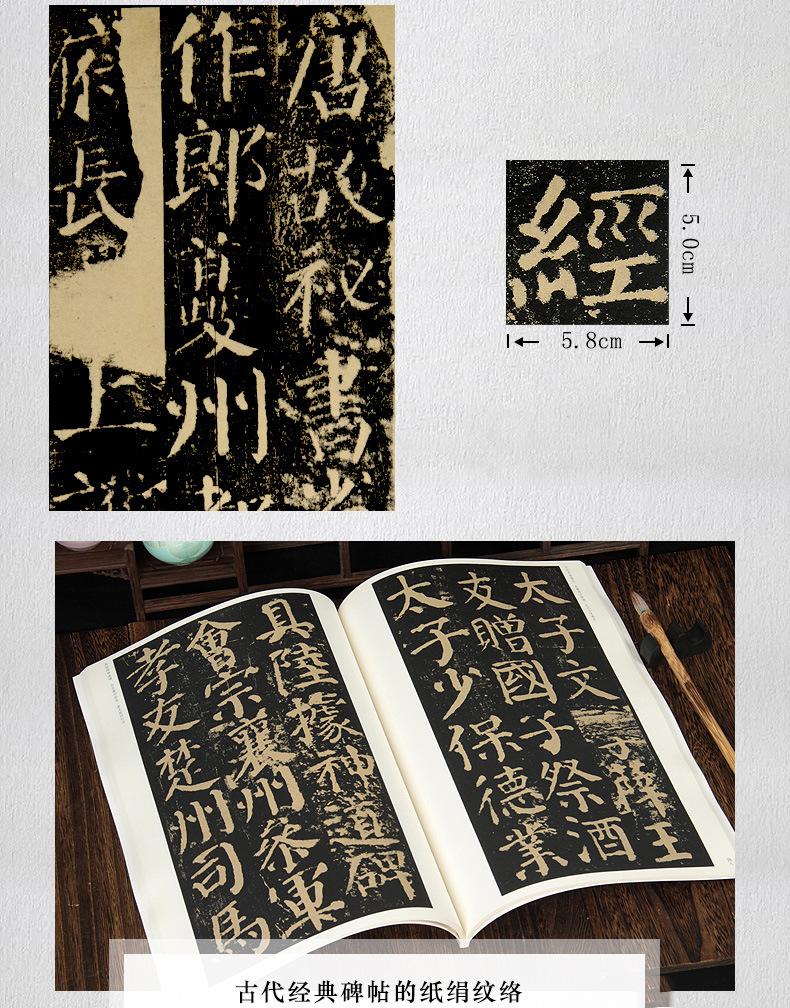 唐故秘書
作郎夔州
府長
上
經
5.0cm
5.8cm
太子文
薛王
友贈國子祭酒
太子少保德業
具陸據神道碑
會宗襄州參軍
孝友楚州司馬
古代经典碑帖的纸绢纹络